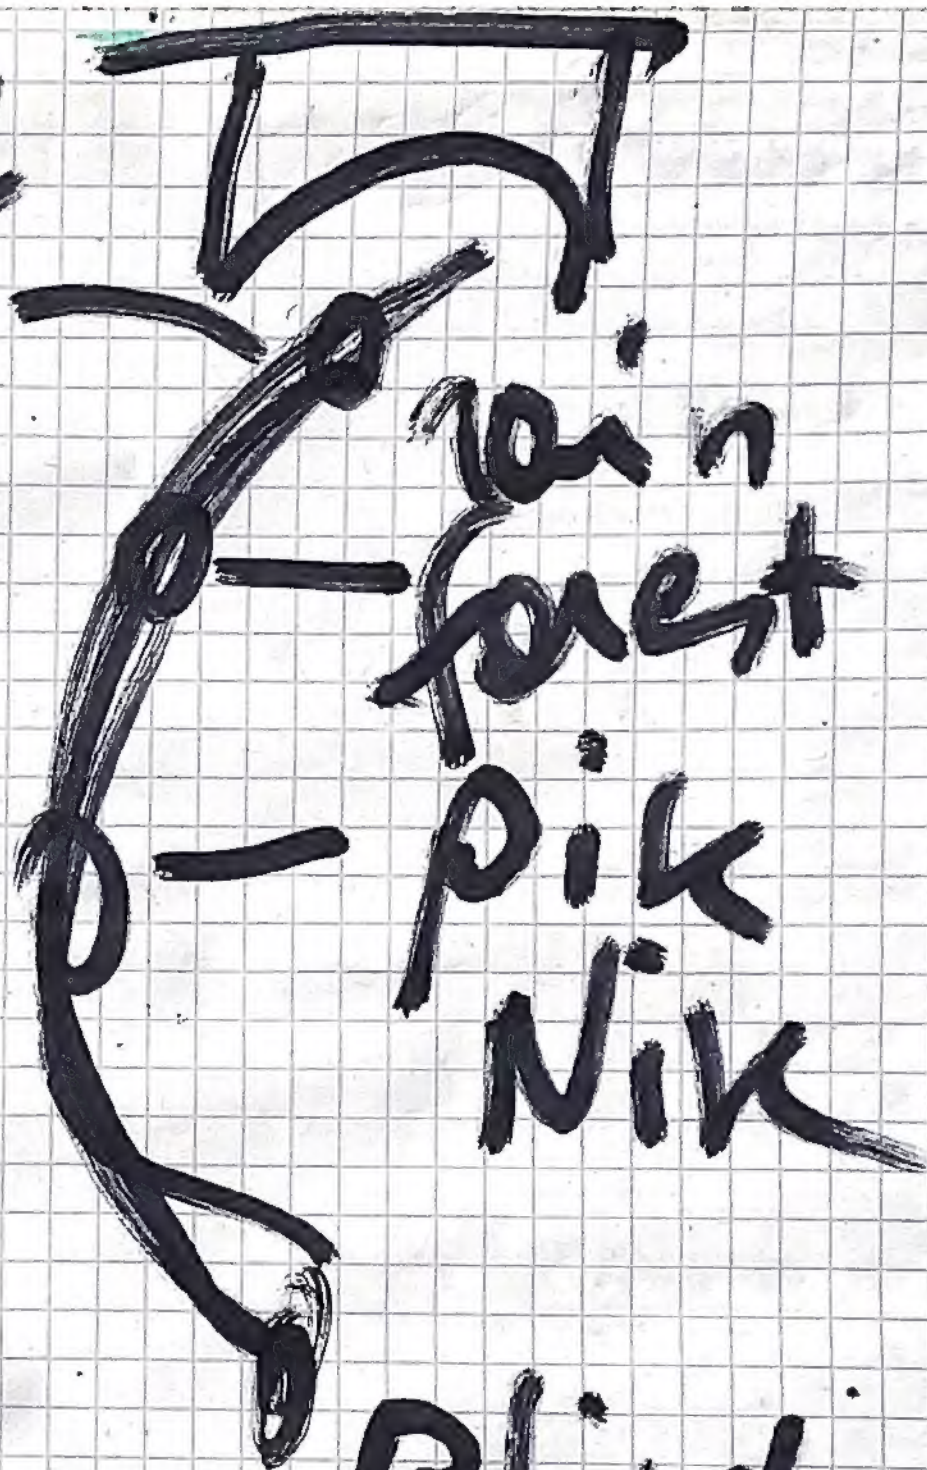 rain
forest
pik
Nik